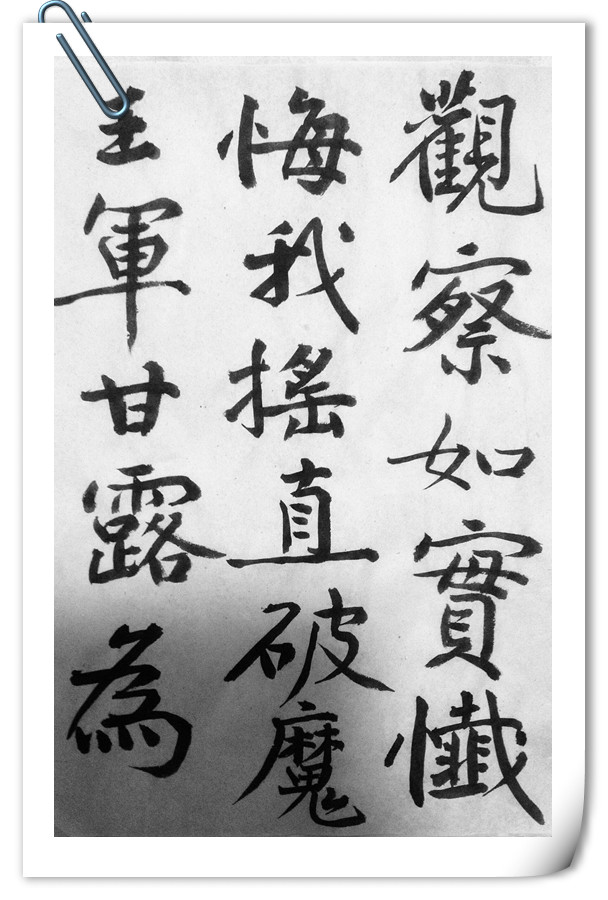 觀察如實懺
悔我搖直破魔
主軍甘露為